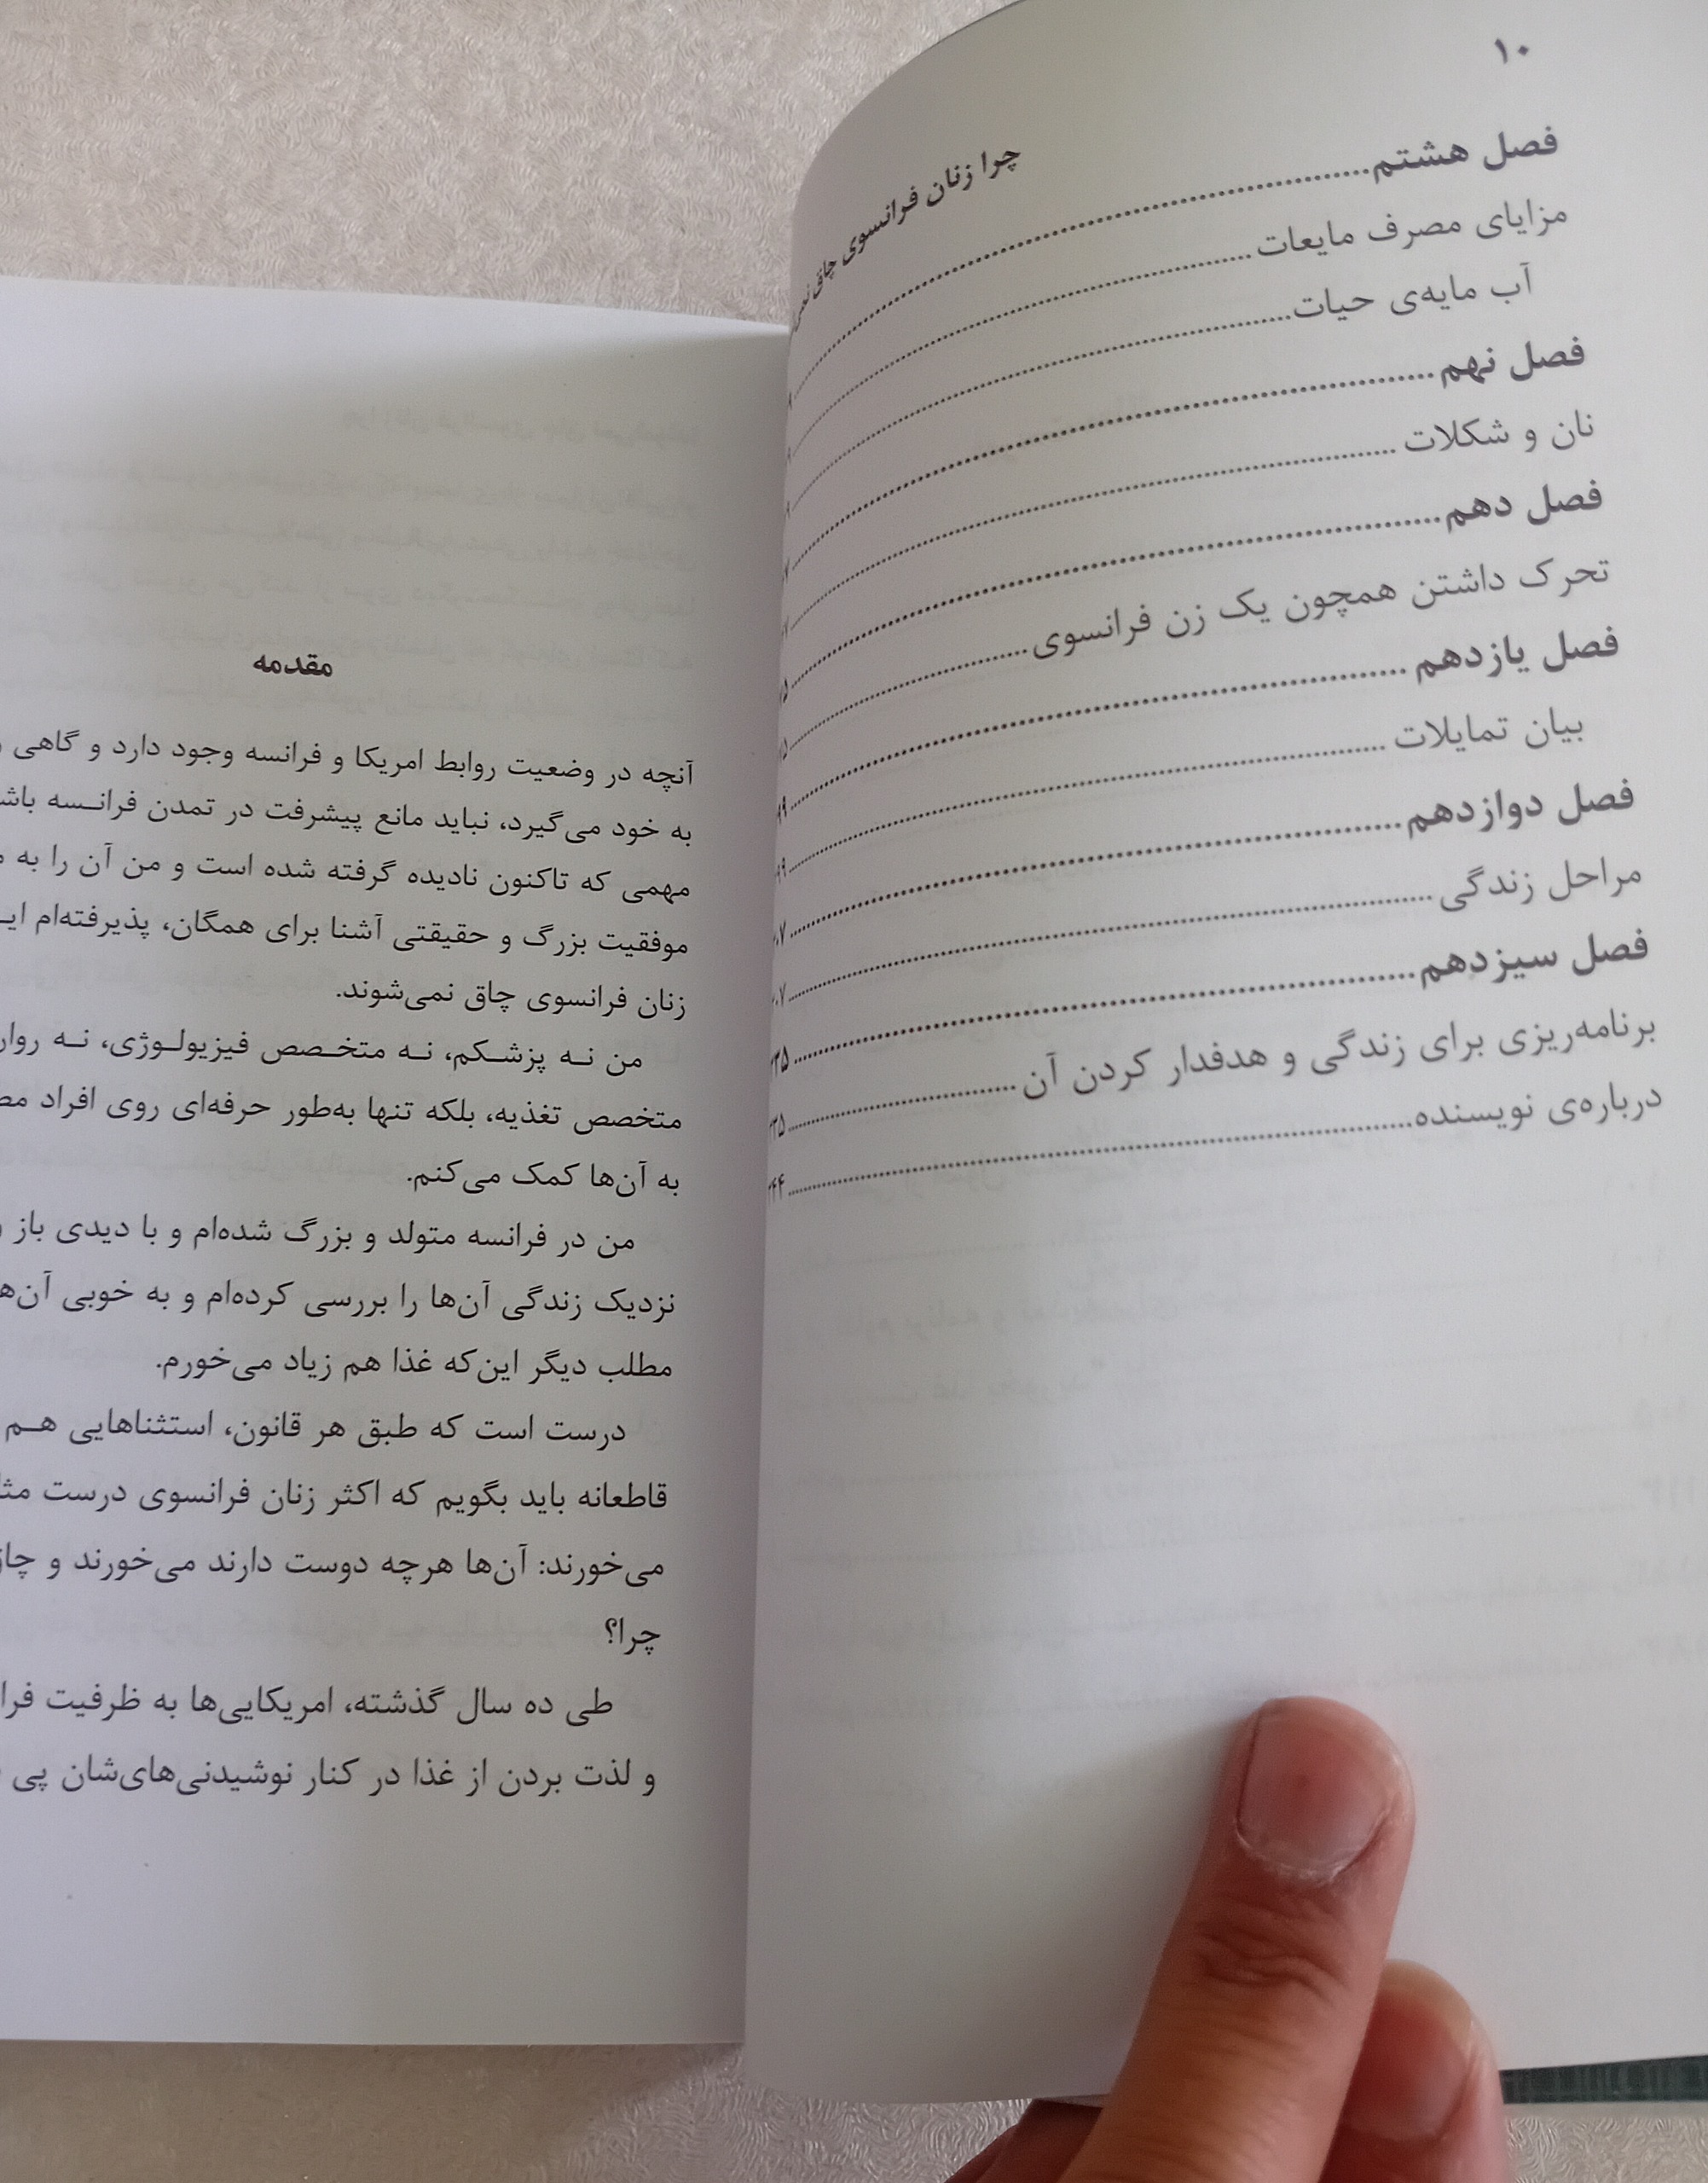 ۱۰
چرا زنان فرانسوی چاق
فصل هشتم
مزایای مصرف مایعات
آب مایه‌ی حیات
فصل نهم
نان و شکلات
فصل دهم
تحرک داشتن همچون یک زن فرانسوی
فصل یازدهم
بیان تمایلات
فصل دوازدهم
مراحل زندگی
فصل سیزدهم
برنامه‌ریزی برای زندگی و هدفدار کردن آن
درباره‌ی نویسنده
مقدمه
آنچه در وضعیت روابط امریکا و فرانسه وجود دارد و گاهی
به خود می‌گیرد، نباید مانع پیشرفت در تمدن فرانسه
مهمی که تاکنون نادیده گرفته شده است و من آن را به
موفقیت بزرگ و حقیقتی آشنا برای همگان، پذیرفته‌ام
زنان فرانسوی چاق نمی‌شوند.
من نه پزشکم، نه متخصص فیزیولوژی، نه
متخصص تغذیه، بلکه تنها به‌طور حرفه‌ای روی افراد
به آن‌ها کمک می‌کنم.
من در فرانسه متولد و بزرگ شده‌ام و با دیدی باز
نزدیک زندگی آن‌ها را بررسی کرده‌ام و به خوبی
مطلب دیگر این‌که غذا هم زیاد می‌خورم.
درست است که طبق هر قانون، استثناهایی هم
قاطعانه باید بگویم که اکثر زنان فرانسوی درست
می‌خورند: آن‌ها هرچه دوست دارند می‌خورند و
چرا؟
طی ده سال گذشته، امریکایی‌ها به ظرفیت
و لذت بردن از غذا در کنار نوشیدنی‌های‌شان پی